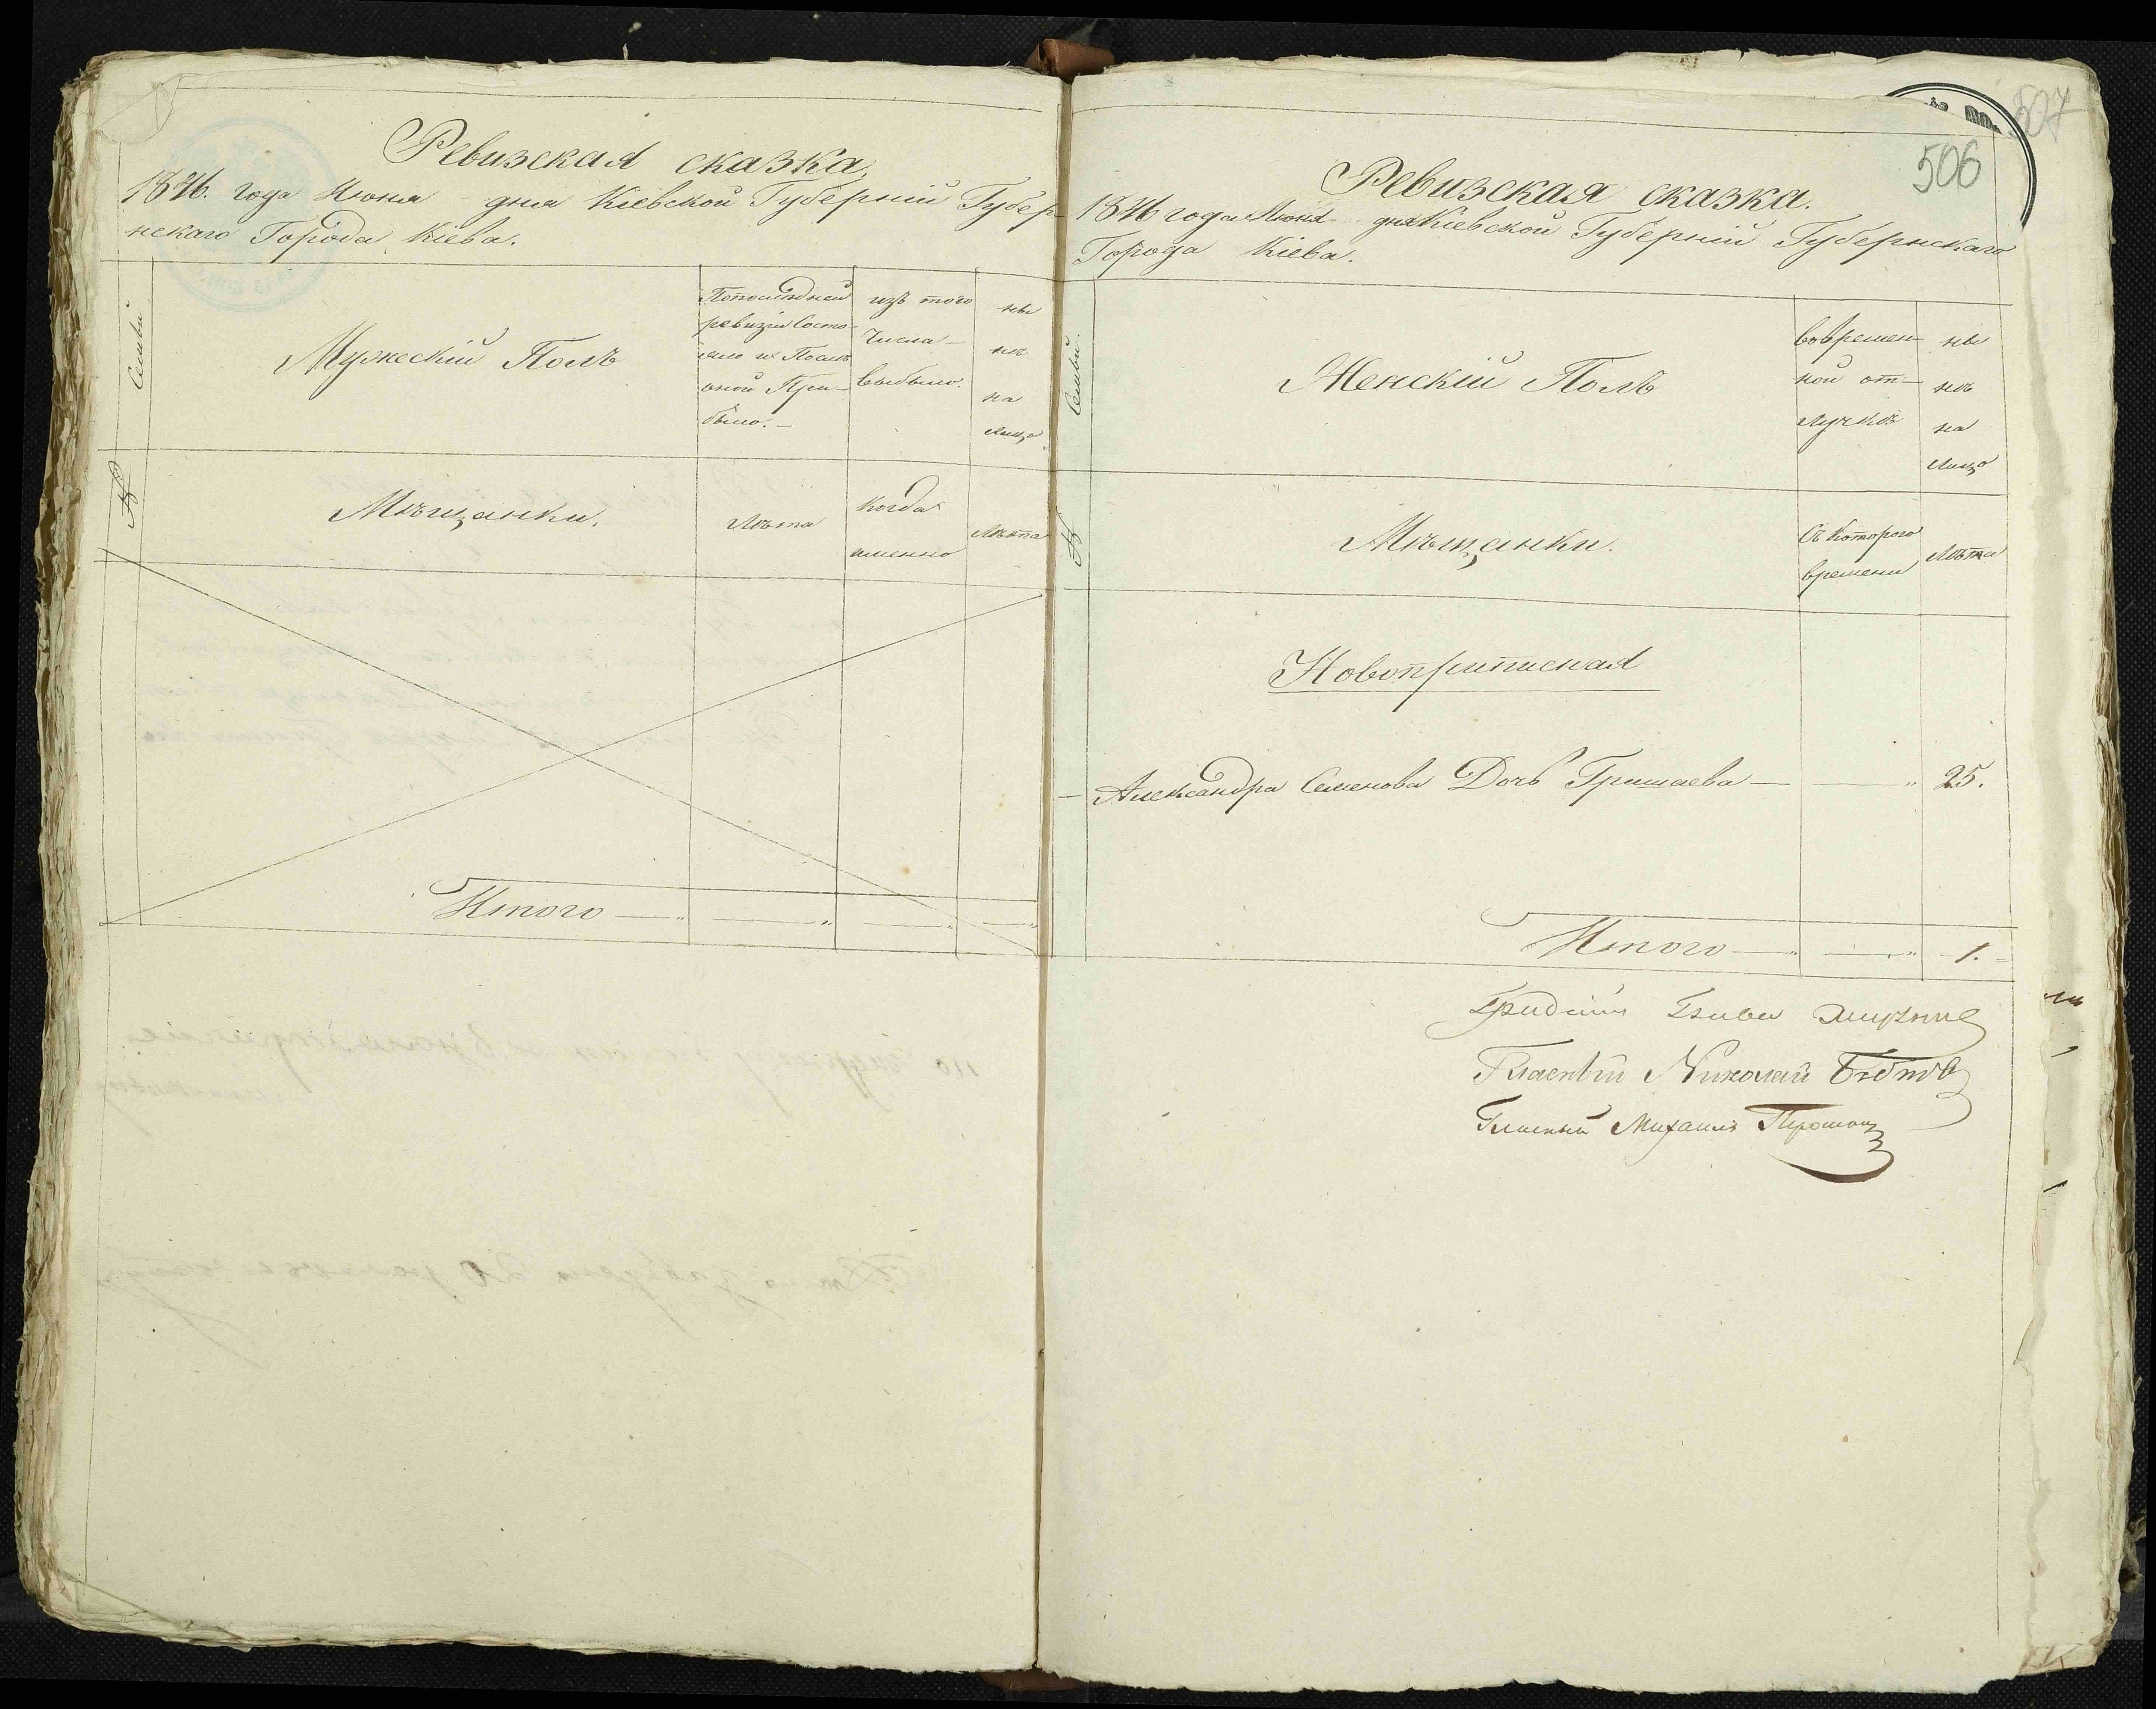 Ревизская сказка,
1846. года Июня дня Кіевской Губерніи Губер-
нскаго Города Кіева.
Семьи
Мужескій Полъ
Попоследней
ревизіи Состо-
яло и После
оной При-
было.-
изъ того
Числа-
выбыло.
ны
нѣ
на
лицо
№
Мѣщанки.
Лѣта
когда
именно
Лѣта
Итого
507
506
Ревизская сказка.
1846 года Июня дня Кіевской Губерніи Губернскаго
Города Кіева.
Семьи.
Женскій Полъ
Вовремен-
ной от-
лучкѣ
ны
нѣ
на
лицо
№
Мѣщанки.
Съ котораго
времени
Лѣта
Новоприписная
Александра Семенова Дочь Гришаева 25.
Итого 1.
Гласный Николай
Гласный Михаилъ